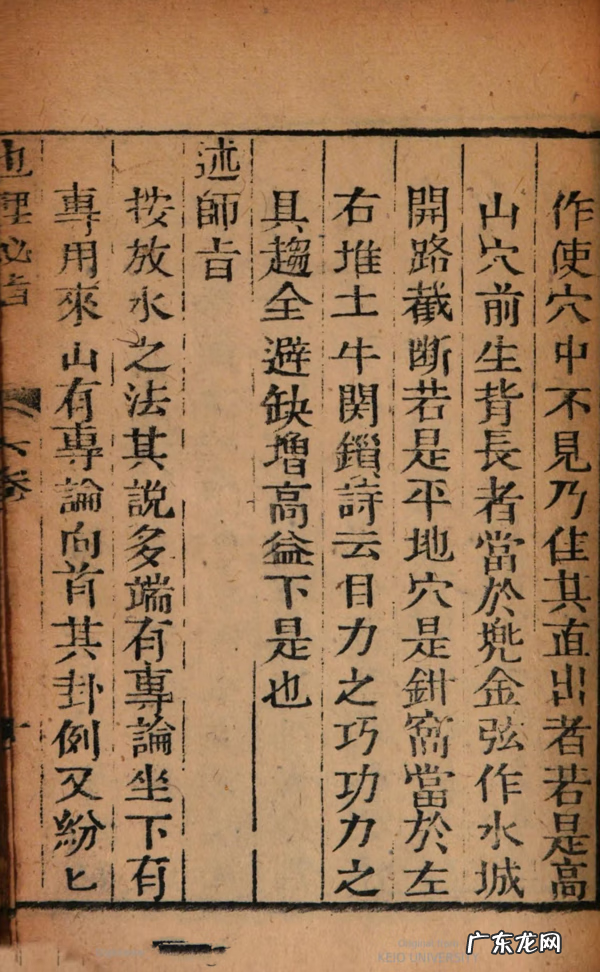 作使穴中不見乃佳其直出者若是高
山穴前生背長者當於兠金弦作水城
開路截断若是平地穴是鉗窩當於左
右堆土牛関鎖詩云目力之巧功力之
具趨全避缺增高益下是也
述師旨
按放水之法其說多端有專論坐下有
專用來山有專論向首其卦例又紛匕
地理必旨
六卷
十
KEIO UNIVERSITY
广东龙网